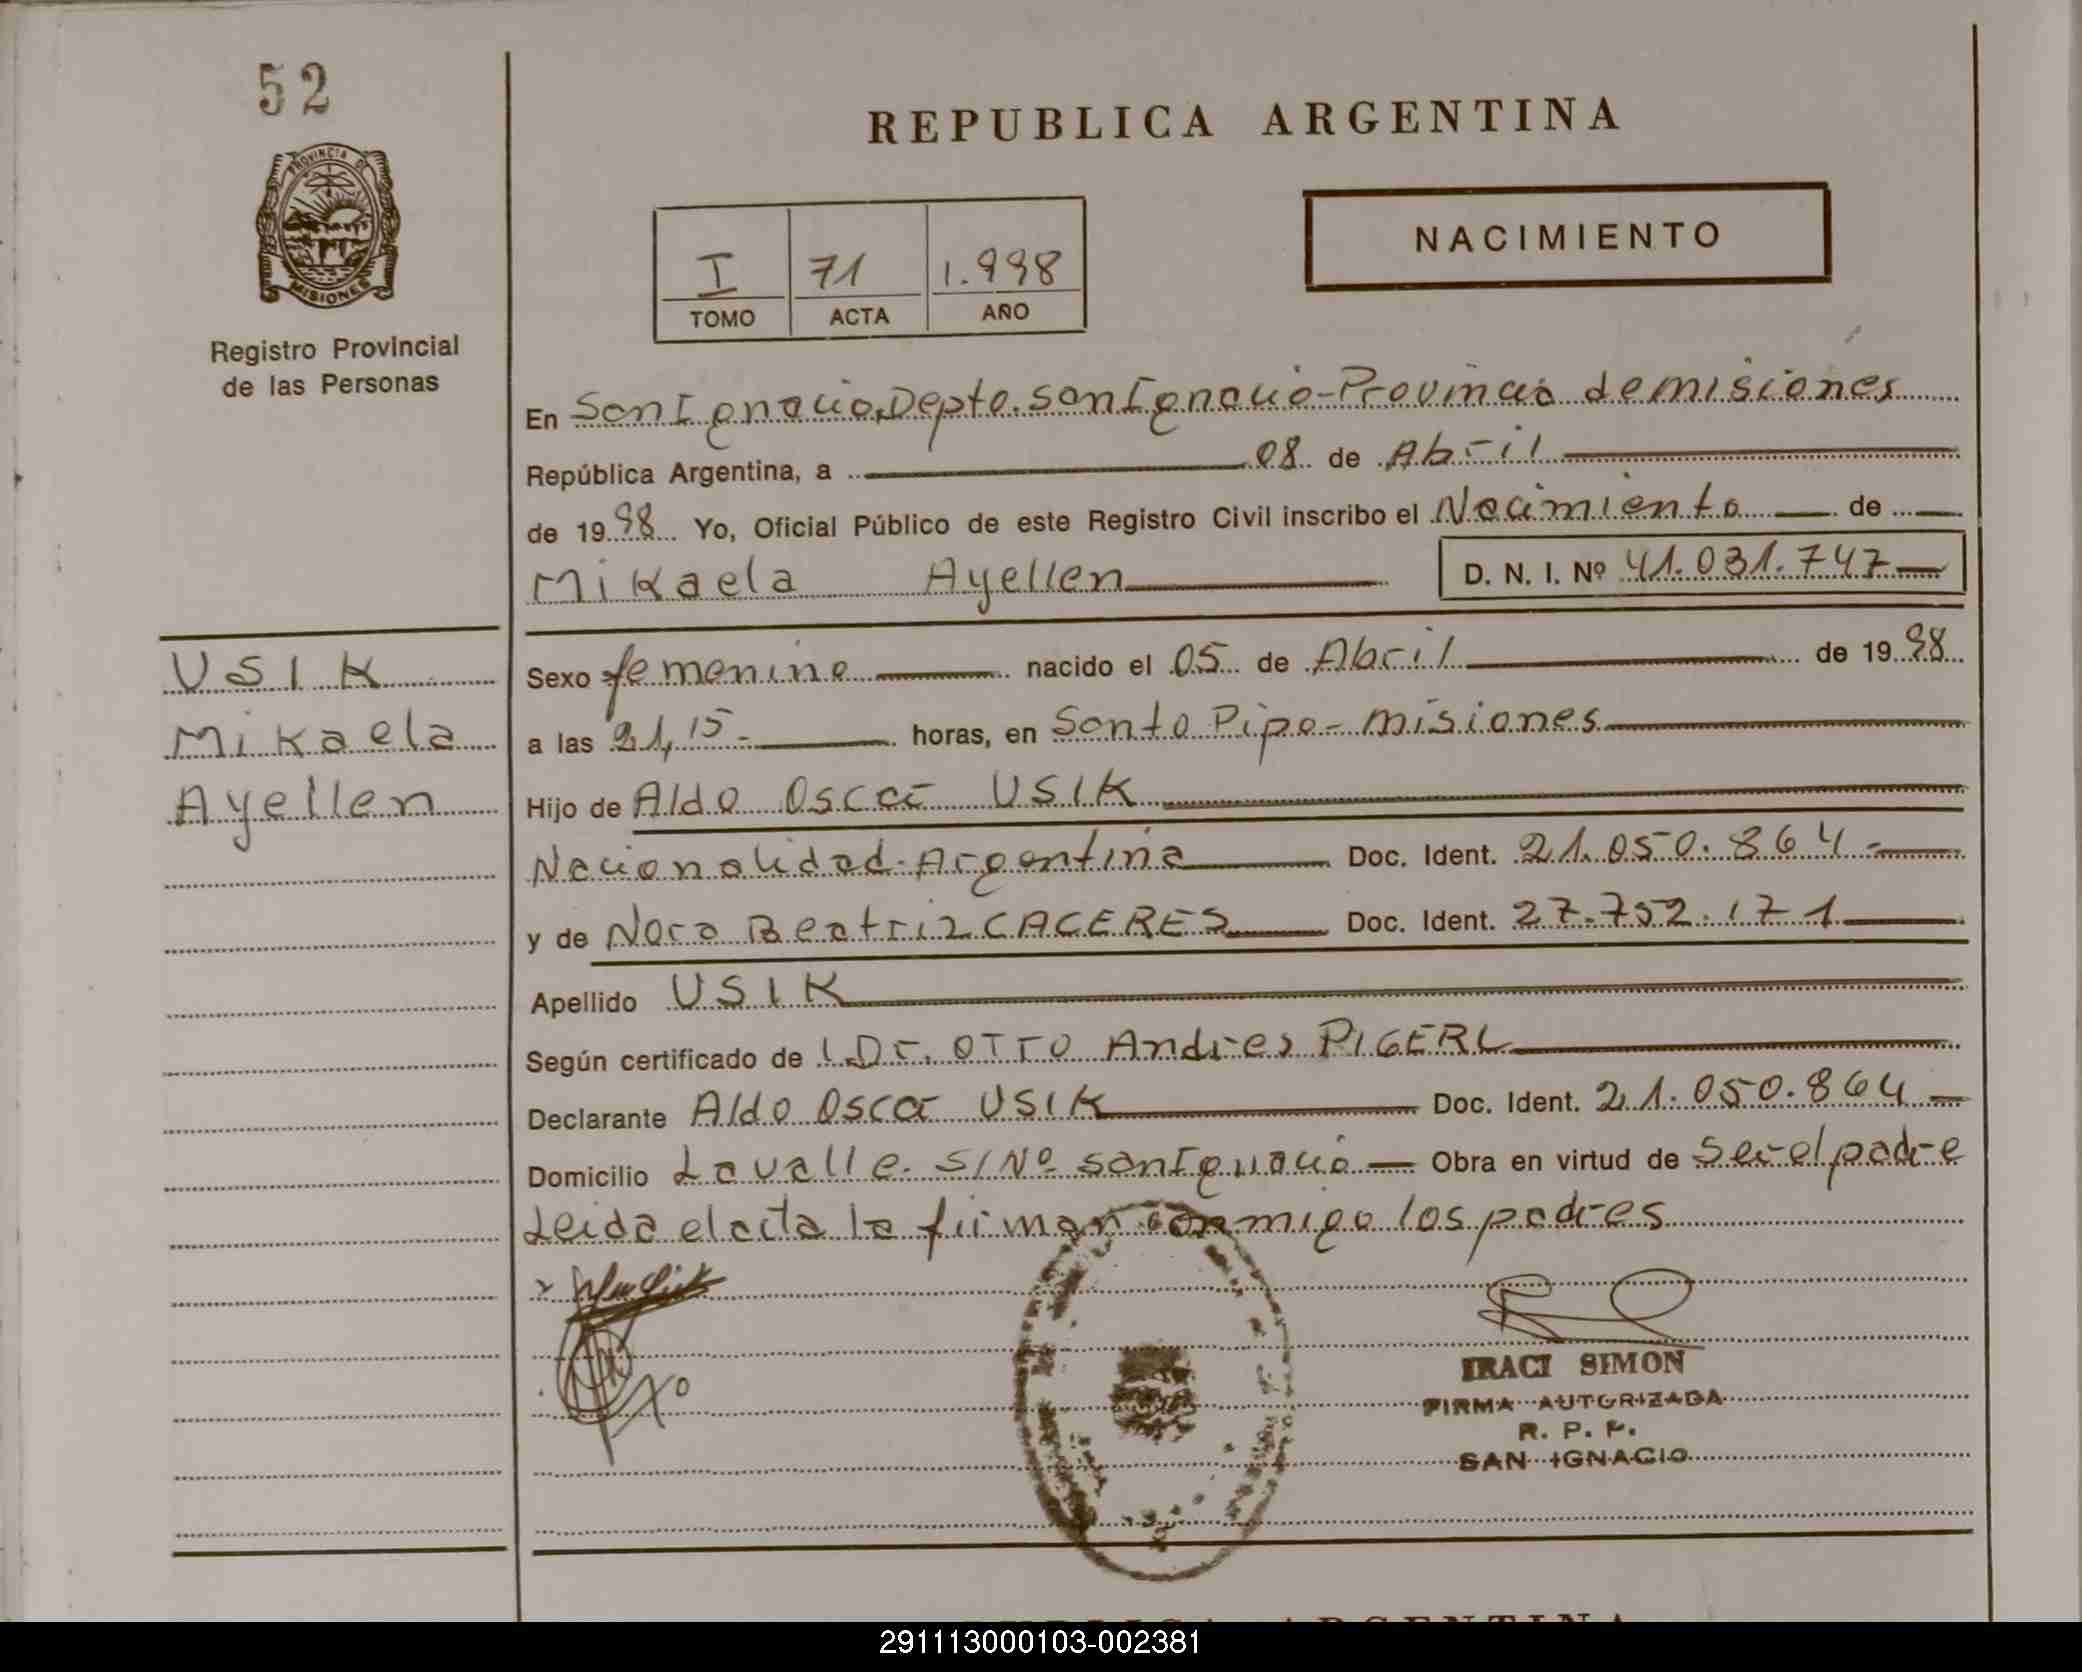 52
PROVINCIA DE
MISIONES
Registro Provincial
de las Personas
REPUBLICA ARGENTINA
I 71 1.998
TOMO ACTA AÑO
NACIMIENTO
En San Ignacio, Depto. San Ignacio - Provincia de misiones
República Argentina, a 08 de Abril
de 1998 Yo, Oficial Público de este Registro Civil inscribo el Nacimiento de
Mikaela Ayellen D. N. I. Nº 41.031.747
USIK
Mikaela
Ayellen
Sexo femenino nacido el 05 de Abril de 1998
a las 21,15 - horas, en Santo Pipo - misiones
Hijo de Aldo Oscar USIK
Nacionalidad Argentina Doc. Ident. 21.050.864 -
y de Nora Beatriz CACERES Doc. Ident. 27.752.171
Apellido USIK
Según certificado de l Dr. OTTO Andres PIGERL
Declarante Aldo Oscar USIK Doc. Ident. 21.050.864
Domicilio Lavalle S/Nº San Ignacio Obra en virtud de Ser el padre
Leida el acta la firman conmigo los padres
IRACI SIMON
FIRMA AUTORIZADA
R. P. P.
SAN IGNACIO
291113000103-002381